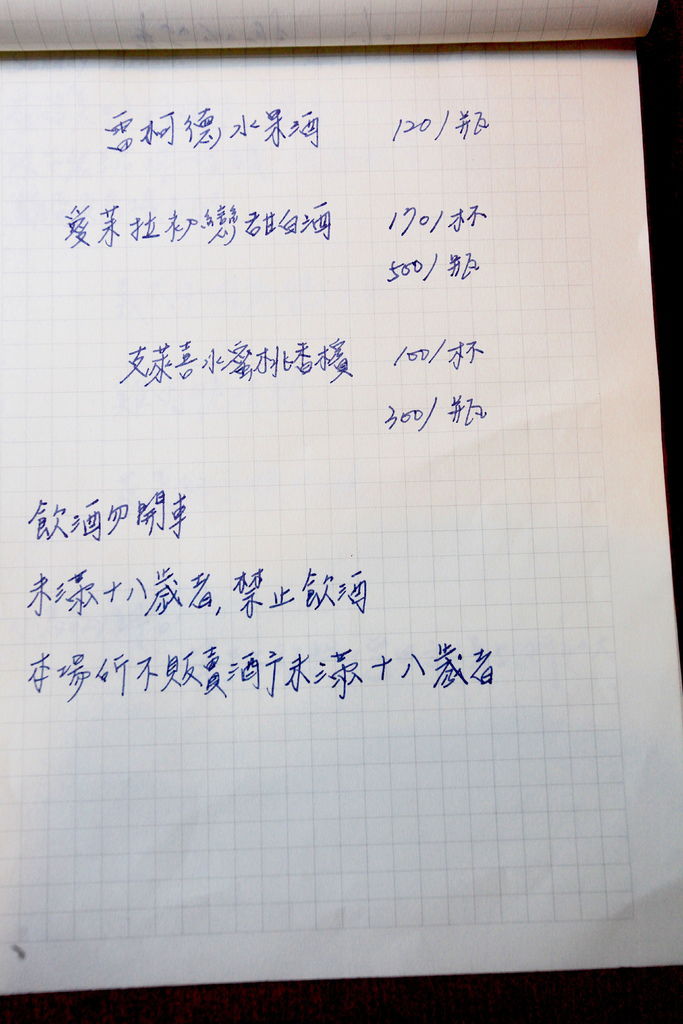 雷柯德水果酒 120/瓶
愛茉拉初戀甜白酒 170/杯
500/瓶
支萊喜水蜜桃香檳 100/杯
300/瓶
飲酒勿開車
未滿十八歲者,禁止飲酒
本場所不販賣酒予未滿十八歲者